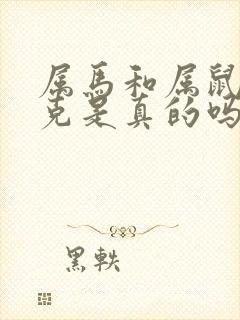 属马和属鼠
克是真的吗
黑轶